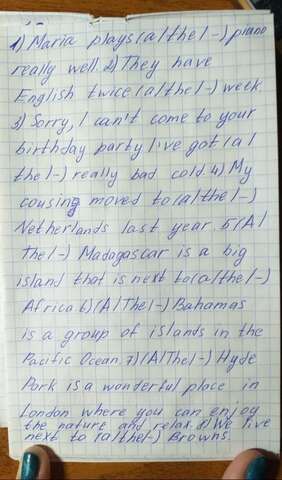 1) Maria plays (a/the/-) piano
really well. 2) They have
English twice (a/the/-) week.
3) Sorry, I can't come to your
birthday party I've got (a/
the/-) really bad cold. 4) My
cousing moved to (a/the/-)
Netherlands last year. 5) (A/
The/-) Madagascar is a big
island that is next to (a/the/-)
Africa. 6) (A/The/-) Bahamas
is a group of islands in the
Pacific Ocean. 7) (A/The/-) Hyde
Park is a wonderful place in
London where you can enjoy
the nature and relax. 8) We live
next to (a/the/-) Browns.